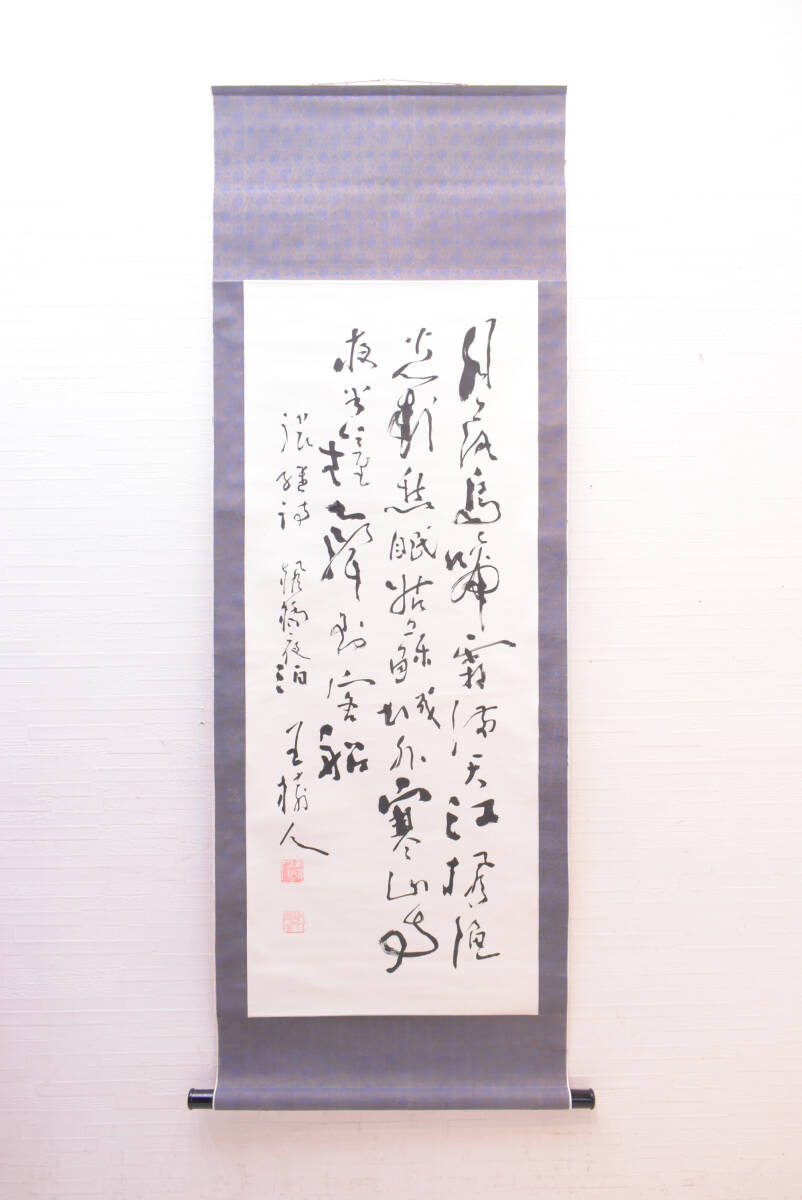 月落烏啼霜滿天江楓漁
火對愁眠姑蘇城外寒山寺
夜半鐘聲到客船
張繼詩 楓橋夜泊 王樹人